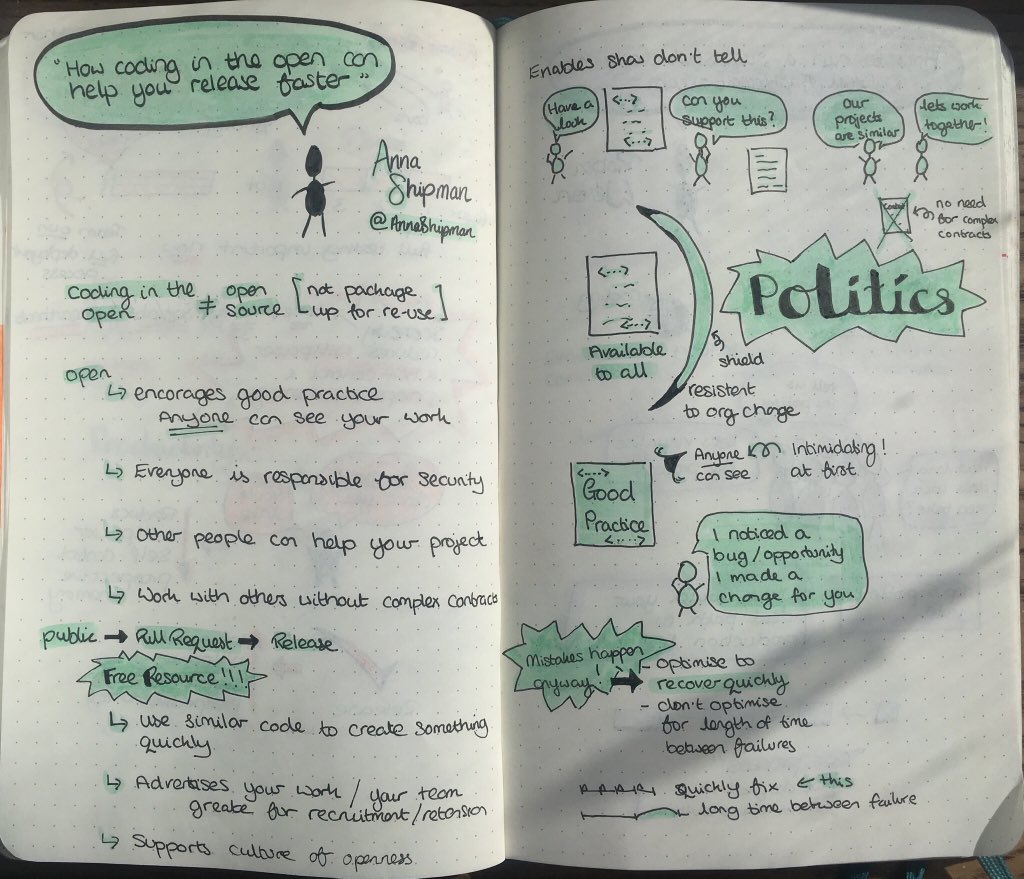 "How coding in the open can
help you release faster"
Anna
Shipman
@AnnaShipman
coding in the open ≠ open source [not package up for re-use]
open
↳ encorages good practice
Anyone can see your work
↳ Everyone is responsible for security
↳ Other people can help your project
↳ Work with others without complex contracts
public → Pull Request → Release
Free Resource!!!
↳ use similar code to create something
quickly
↳ Advertises your work / your team
greate for recruitment/retension
↳ Supports culture of openness
Enables show don't tell
Have a
look
can you
support this?
our
projects
are similar
lets work
together!
no need
for complex
contracts
Politics
Available
to all
shield
resistent
to org change
Good
Practice
Anyone
can see
Intimidating!
at first
I noticed a
bug/opportunity
I made a
change for you
Mistakes happen
anyway!
- optimise to
recover quickly
- don't optimise
for length of time
between failures
quickly fix ← this
long time between failure